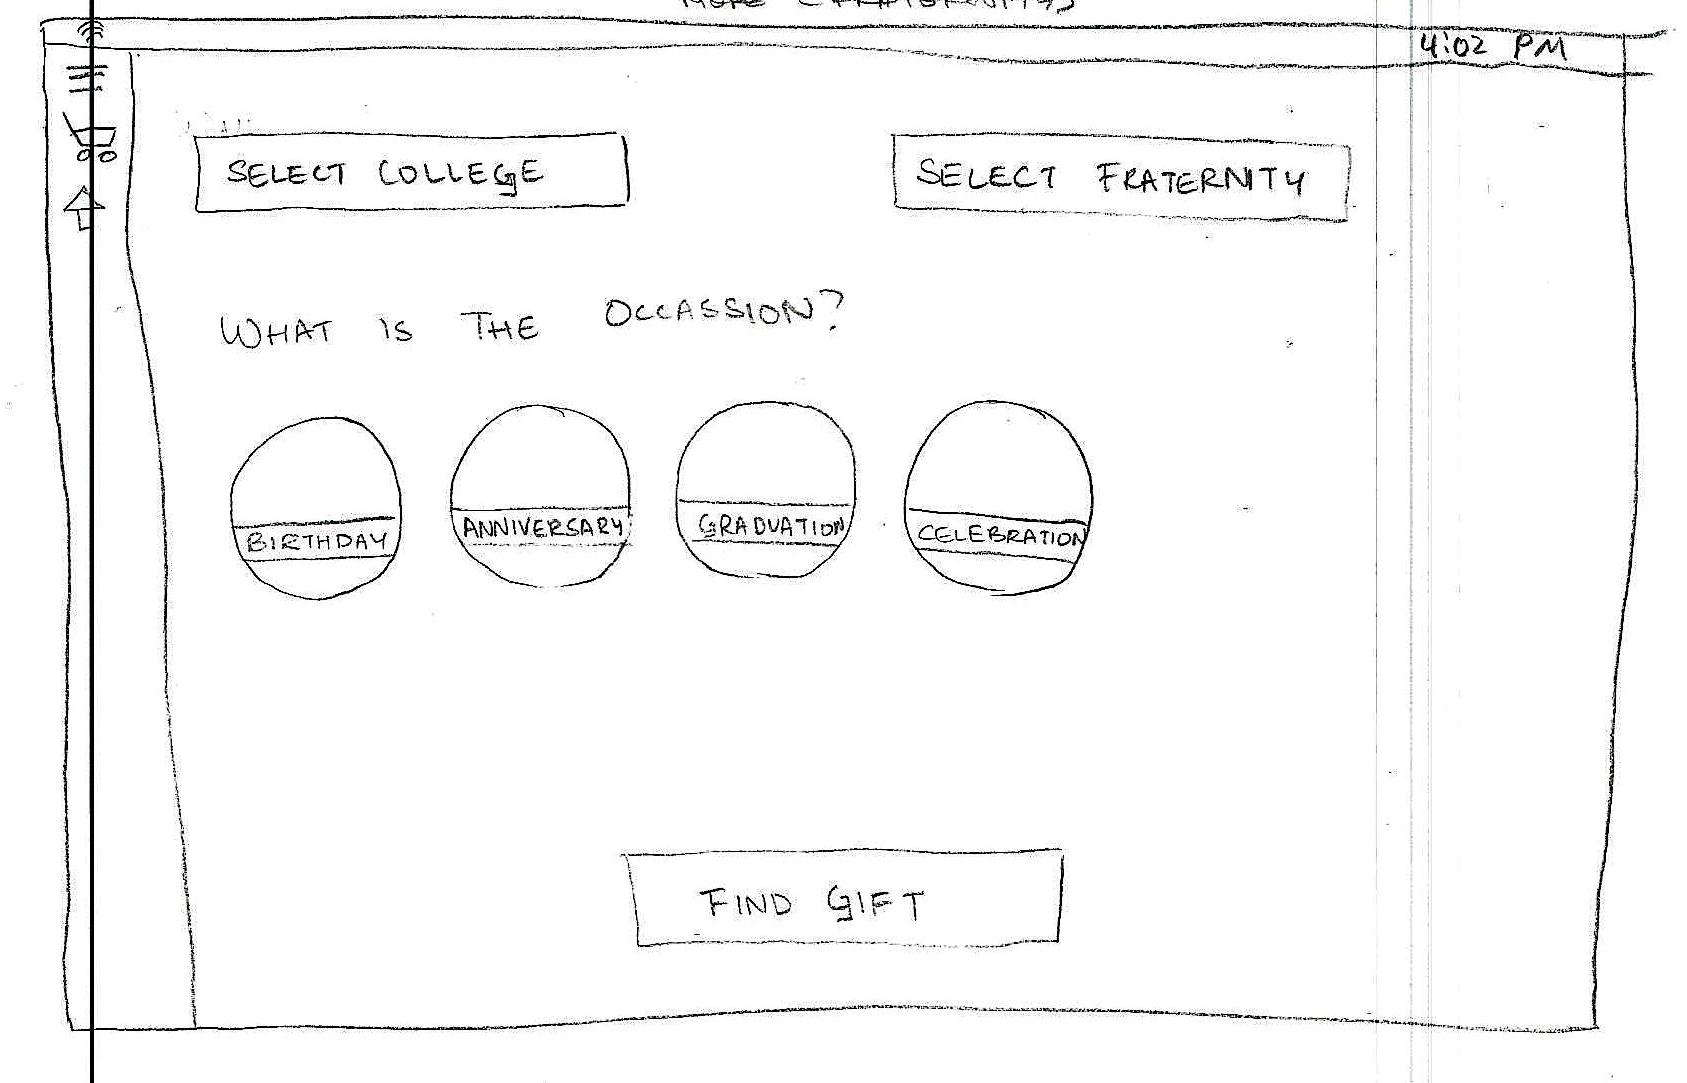 4:02 PM
SELECT COLLEGE
SELECT FRATERNITY
WHAT IS THE OCCASSION?
BIRTHDAY
ANNIVERSARY
GRADUATION
CELEBRATION
FIND GIFT